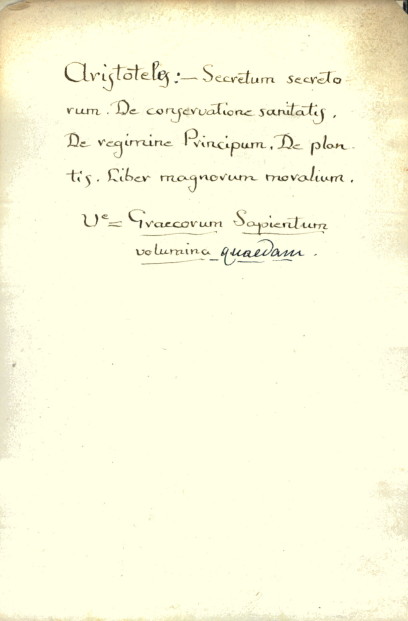 Aristoteles:— Secretum secreto-
rum. De conservatione sanitatis.
De regimine Principum. De plan-
tis. Liber magnorum moralium.
Ve= Graecorum Sapientum
volumina quaedam.